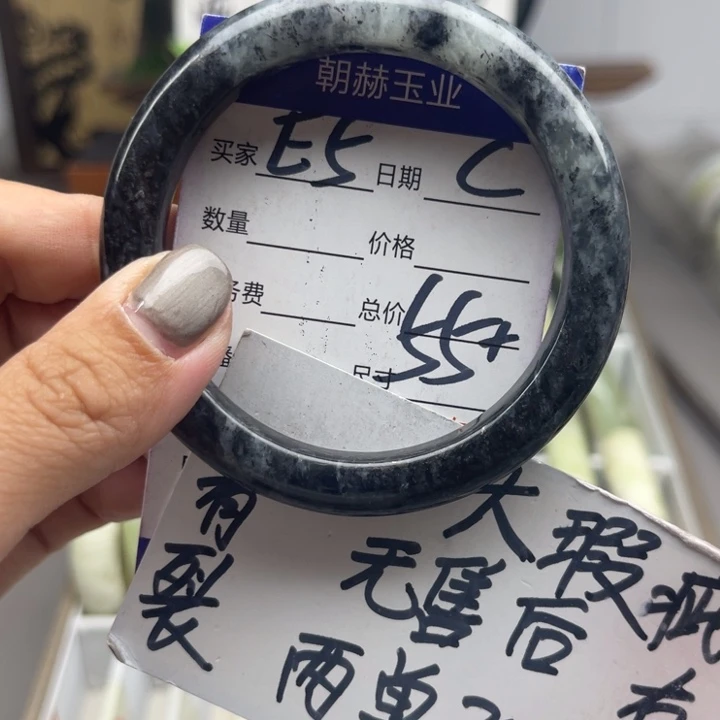 朝赫玉业
买家 E5 日期 C
数量 价格
务费 总价
尺寸 55
有 大瑕疵
裂 无售后
两单 有